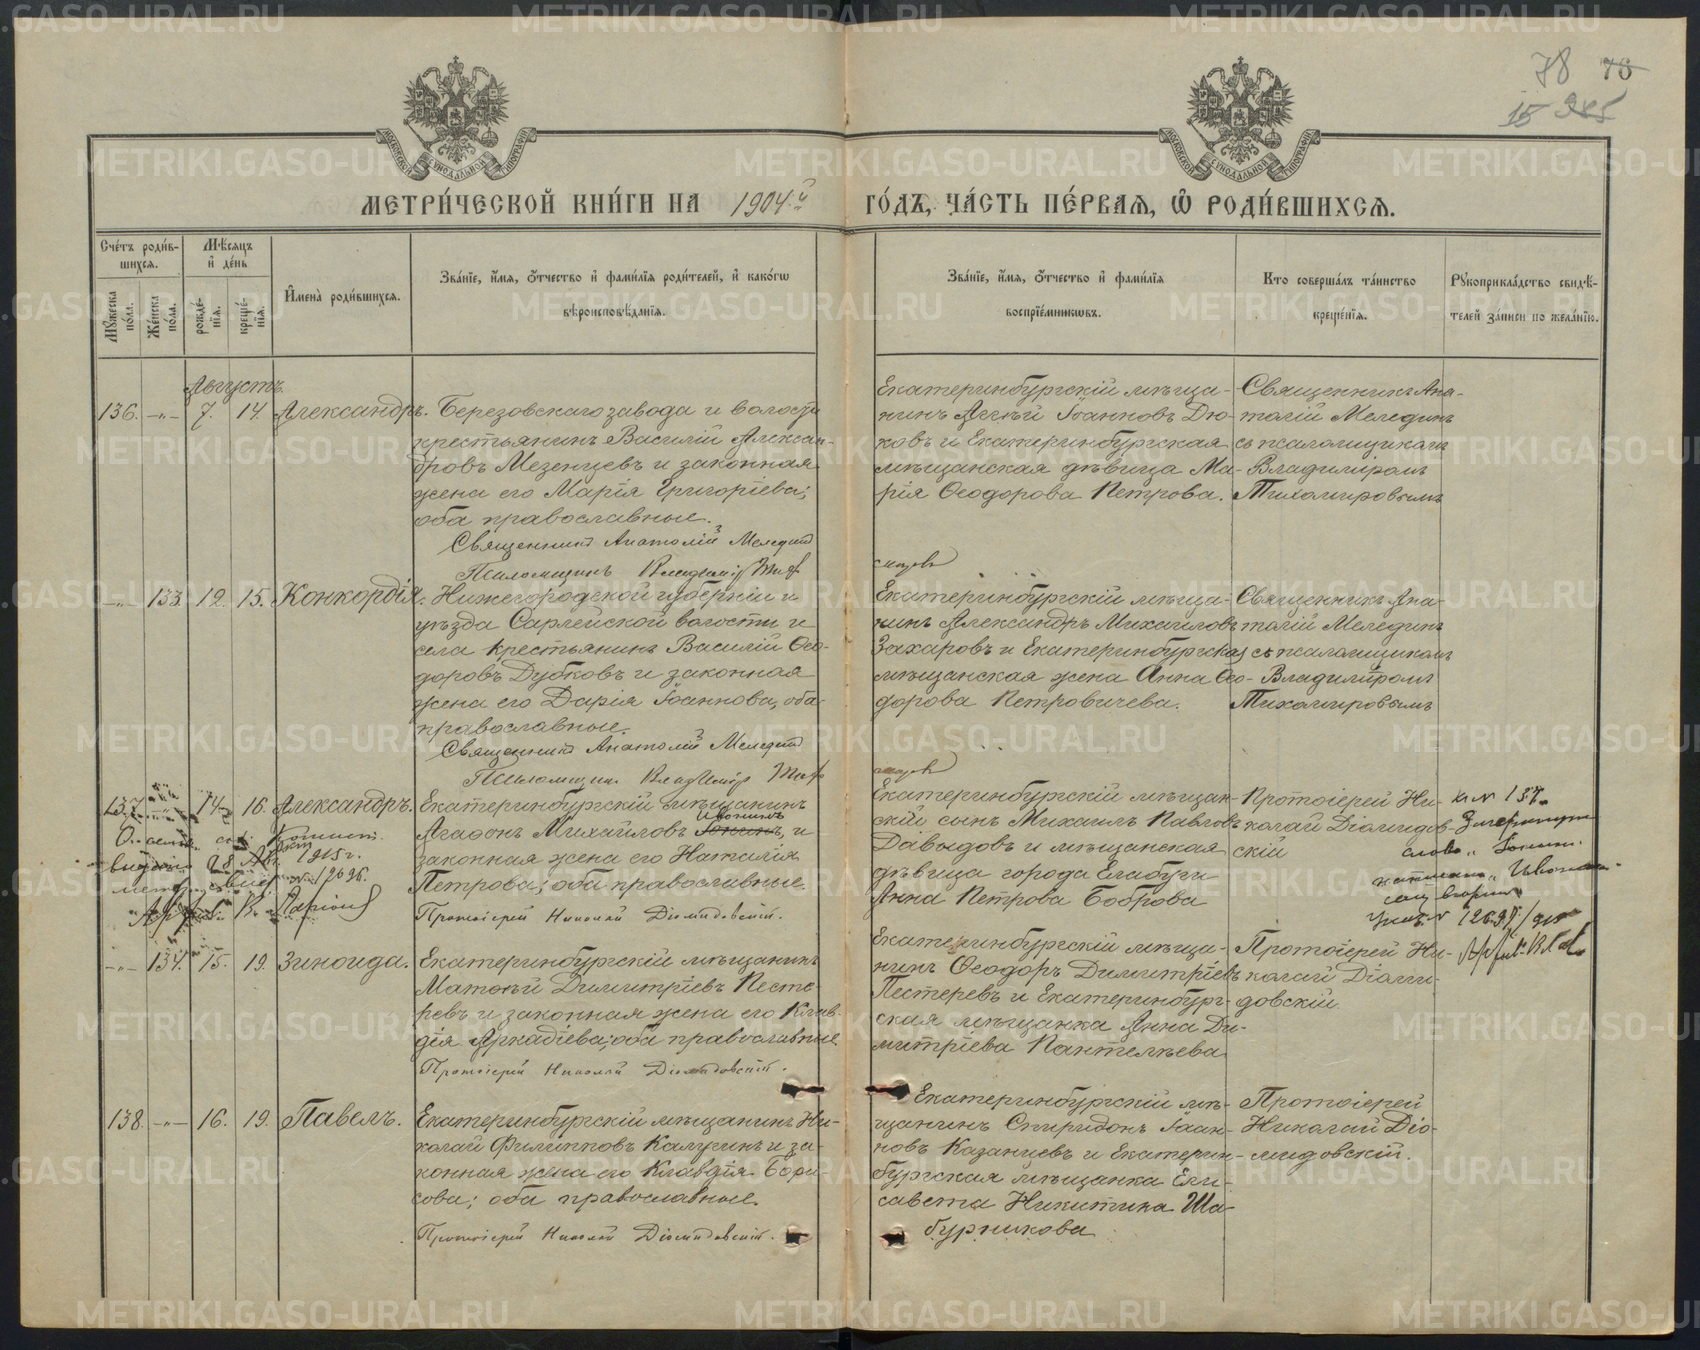 78 78
15 285
МЕТРИ́ЧЕСКОЙ КНИ́ГИ НА 1904й ГО́ДЪ, ЧА́СТЬ ПЕ́РВАѦ, Ѽ РОДИ́ВШИХСѦ.
Сче́тъ роди́в-
шихсѧ.
Мѣ́сѧцъ
и҆ де́нь
Мꙋ́жеска
по́ла.
Же́нска
по́ла.
рожде́-
нїѧ.
креще́-
нїѧ.
И҆мена̀ роди́вшихсѧ.
Зва́нїе, и҆́мѧ, ѻ҆́тчество и҆ фами́лїѧ роди́телей, и҆ како́гѡ
вѣроисповѣ́данїѧ.
Зва́нїе, и҆́мѧ, ѻ҆́тчество и҆ фами́лїѧ
воспрїе́мникѡвъ.
Кто соверша́лъ та́инство
креще́нїѧ.
Рꙋкоприкла́дство свидѣ́-
телей за́писи по жела́нїю.
Августъ
136. -"- 7. 14. Александръ.
Березовскаго завода и волости
крестьянинъ Василій Алексан-
дровъ Мезенцевъ и законная
жена его Марія Григоріева;
оба православные.
Священникъ Анатолій Меледин
Псаломщикъ Владимір Тих
Екатеринбургскій мѣща-
нинъ Алексѣй Іоанновъ Дю-
ковъ и Екатеринбургская
мѣщанская дѣвица Ма-
рія Ѳеодорова Петрова.
Священникъ Ана-
толій Мелединъ
съ псаломщикомъ
Владиміромъ
Тихомировымъ
-"- 133. 12. 15. Конкордія.
Нижегородской губерніи и
уѣзда Сарлейской волости и
села крестьянинъ Василій Ѳео-
доровъ Дубковъ и законная
жена его Дарія Іоаннова, оба
православные.
Священникъ Анатолій Меледин
Псаломщик Владимір Тих
Екатеринбургскій мѣща-
нинъ Александръ Михаиловъ
Захаровъ и Екатеринбургская
мѣщанская жена Анна Ѳео-
дорова Петровичева.
Священникъ Ана-
толій Мелединъ
съ псаломщикомъ
Владиміромъ
Тихомировымъ
137. -"- 14. 16. Александръ.
Екатеринбургскій мѣщанинъ
Агафонъ Михайловъ Іонинъ, и
Ивонинъ
законная жена его Наталія
Петрова; оба православные.
Протоіерей Николай Діомидовскій.
28 1915 г.
№ 12696.
Екатеринбургскій мѣщан-
скій сынъ Михаилъ Павловъ
Давыдовъ и мѣщанская
дѣвица города Елабуги
Анна Петрова Боброва
Протоіерей Ни-
колай Діомидов-
скій
къ № 137.
Зачеркнуто
слово "Іонин"
написано "Ивонин"
-"- 134. 15. 19. Зиноида.
Екатеринбургскій мѣщанинъ
Матѳей Димитріевъ Песте-
ревъ и законная жена его Клав-
дія Аркадіева; оба православные
Протоіерей Николай Діомидовскій.
Екатеринбургскій мѣща-
нинъ Ѳеодоръ Димитріевъ
Пестеревъ и Екатеринбург-
ская мѣщанка Анна Ди-
митріева Пантелѣева
Протоіерей Ни-
колай Діоми-
довскій.
138. -"- 16. 19. Павелъ.
Екатеринбургскій мѣщанинъ Ни-
колай Филипповъ Калугинъ и за-
конная жена его Клавдія Бори-
сова; оба православные.
Протоіерей Николай Діомидовскій.
Екатеринбургскій мѣ-
щанинъ Спиридонъ Іоан-
новъ Казанцевъ и Екатерин-
бургская мѣщанка Ели-
савета Никитина Ша-
бурникова
Протоіерей
Николай Діо-
мидовскій.
METRIKI.GASO-URAL.RU